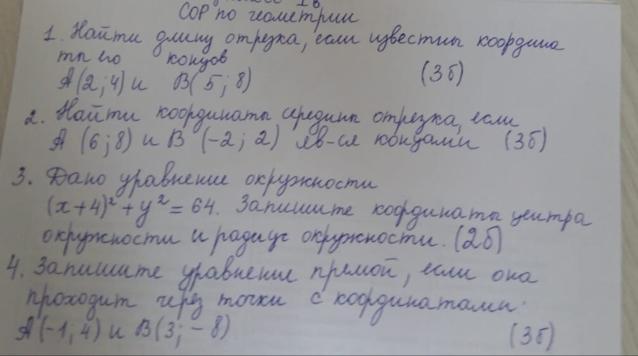 СОР по геометрии
1. Найти длину отрезка, если известны координа
ты его концов
A(2;4) и B(5;8) (3б)
2. Найти координаты середины отрезка, если
A (6;8) и B (-2; 2) яв-ся концами (3б)
3. Дано уравнение окружности
(x+4)² + y² = 64. Запишите координаты центра
окружности и радиус окружности. (2б)
4. Запишите уравнение прямой, если она
проходит через точки с координатами:
A(-1, 4) и B(3; -8) (3б)